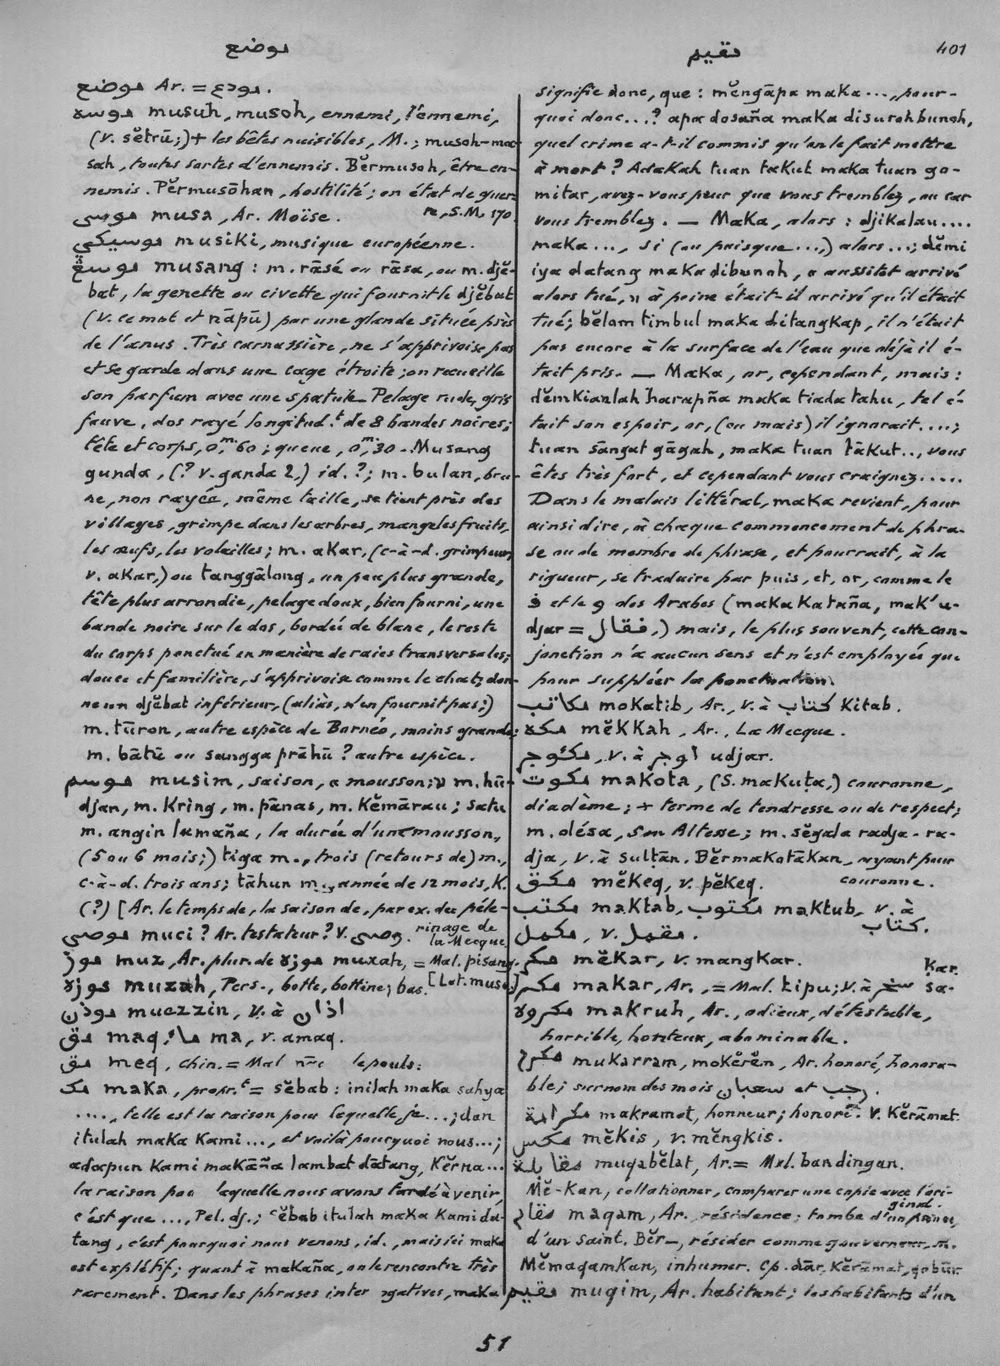 موضع
مقيم
401
موضع Ar. = مودع.
موسه musuh, musoh, ennemi, l'ennemi,
(v. sĕtrū;) + les bêtes nuisibles, M.; musoh-ma-
sah, toutes sortes d'ennemis. Bĕrmusoh, être en-
nemis. Pĕrmusōhan, hostilité; en état de guer-
re, S.M. 170.
موسى musa, Ar. Moïse.
موسيكي musiki, musique européenne.
موسڠ musang: m. rāsé ou rāsa, ou m. djĕ-
bat, la genette ou civette qui fournit le djĕbat
(v. ce mot et nāpū) par une glande située près
de l'anus. Très carnassière, ne s'apprivoise pas
et se garde dans une cage étroite; on recueille
son parfum avec une spatule. Pelage rude, gris
fauve, dos rayé longitud.t de 8 bandes noires;
tête et corps, 0,m60; queue, 0,m30. Musang
gunda, (? v. ganda 2,) id.?; m. bulan, bru-
ne, non rayée, même taille, se tient près des
villages, grimpe dans les arbres, mange les fruits,
les œufs, les volailles; m. akar, (c-à-d. grimpeur,
v. akar,) ou tanggālong, un peu plus grande,
tête plus arrondie, pelage doux, bien fourni, une
bande noire sur le dos, bordée de blanc, le reste
du corps ponctué en manière de raies transversales;
douce et familière, s'apprivoise comme le chat; don-
ne un djĕbat inférieur, (aliàs, n'en fournit pas;)
m. tūron, autre espèce de Bornéo, moins grande;
m. bātū ou sangga prāhū? autre espèce.
موسم musim, saison, « mousson; » m. hū-
djan, m. kring, m. pānas, m. kĕmārau; satu
m. angin lamaña, la durée d'une mousson,
(5 ou 6 mois;) tiga m., trois (retours de) m.,
c-à-d. trois ans; tāhun m., année de 12 mois, K.
(?) [Ar. le temps de, la saison de, par ex. du péle-
rinage de
la Mecque
موصى muci? Ar. testateur? V. وصى.
موز muz, Ar. plur. de موزه muzah, = Mal. pisang.
[Lat. musa]
موزه muzah, Pers., botte, bottine; bas.
موذن muazzin, v. à اذان
مق maq, ماء, ma, v. amaq.
مق meq, chin. = Mal le pouls.
مک maka, propr.t = sĕbab: inilah maka sahya
...., telle est la raison pour laquelle je...; dan
itulah maka kami..., et voilà pourquoi nous...;
adapun kami makāña lambat dātang, kĕrna...
la raison pour laquelle nous avons tardé à venir,
c'est que..., Pel. dj.; sĕbab itulah maka kami da-
tang, c'est pourquoi nous venons, id., mais ici maka
est explétif; quant à makaña, on le rencontre très
rarement. Dans les phrases interrogatives, maka
signifie donc, que: mĕngāpa maka..., pour-
quoi donc...? apa dosaña maka disuroh bunoh,
quel crime a-t-il commis qu'on le fait mettre
à mort? Adakah tuan takut maka tuan go-
mitar, avez-vous peur que vous tremblez, ou car
vous tremblez. — Maka, alors: djikalau....
maka..., si (ou puisque...,) alors...; dĕmi
iya datang maka dibunoh, « aussitôt arrivé
alors tué, » à peine était-il arrivé qu'il était
tué; bĕlom timbul maka ditangkap, il n'était
pas encore à la surface de l'eau que déjà il é-
tait pris. — Maka, or, cependant, mais:
dĕmkianlah harapña maka tiada tahu, tel é-
tait son espoir, or, (ou mais) il ignorait....;
tuan sāngat gāgah, maka tuan tākut.., vous
êtes très fort, et cependant vous craignez.....
Dans le malais littéral, maka revient, pour
ainsi dire, à chaque commencement de phra-
se ou de membre de phrase, et pourrait, à la
rigueur, se traduire par puis, et, or, comme le
ف et le و des Arabes (maka kataña, mak' u-
djar = فقال,) mais, le plus souvent, cette con-
jonction n'a aucun sens et n'est employée que
pour suppléer la ponctuation.
مكاتب mokatib, Ar., v. à كتاب kitab.
مكه mĕkkah, Ar., La Mecque.
مكوجر, v. à اوجر udjar.
مكوت makota, (S. makuṭa,) couronne,
diadème; + terme de tendresse ou de respect;
m. désa, Son Altesse; m. sĕgala radja-ra-
dja, v. à sulṭān. Bĕrmakotākan, ayant pour
couronne.
مكق mĕkeq, v. pĕkeq.
مكتب maktab, مكتوب maktub, v. à
كتاب.
مكمل, v. مقمل.
مكر mĕkar, v. mangkar.
مكر makar, Ar., = Mal. tipu; v. à سخر sa-
kar.
مكروه makruh, Ar., odieux, détestable,
horrible, honteux, abominable.
مكرم mukarram, mokĕrĕm, Ar. honoré, honora-
ble; surnom des mois شعبان et رجب.
مكرامة makramat, honneur; honoré. V. Kĕrāmat.
مكس mĕkis, v. mĕngkis.
مقابلة muqabĕlat, Ar. = Mal. bandingan.
Mĕ-kan, collationner, comparer une copie avec l'ori-
ginal.
مقام maqam, Ar., résidence; tombe d'un prince,
d'un saint. Bĕr—, résider comme gouverneur, M.
Mĕmaqamkan, inhumer. Cp. dār, Kĕrāmat, qobūr.
مقيم muqim, Ar. habitant; les habitants d'un
51